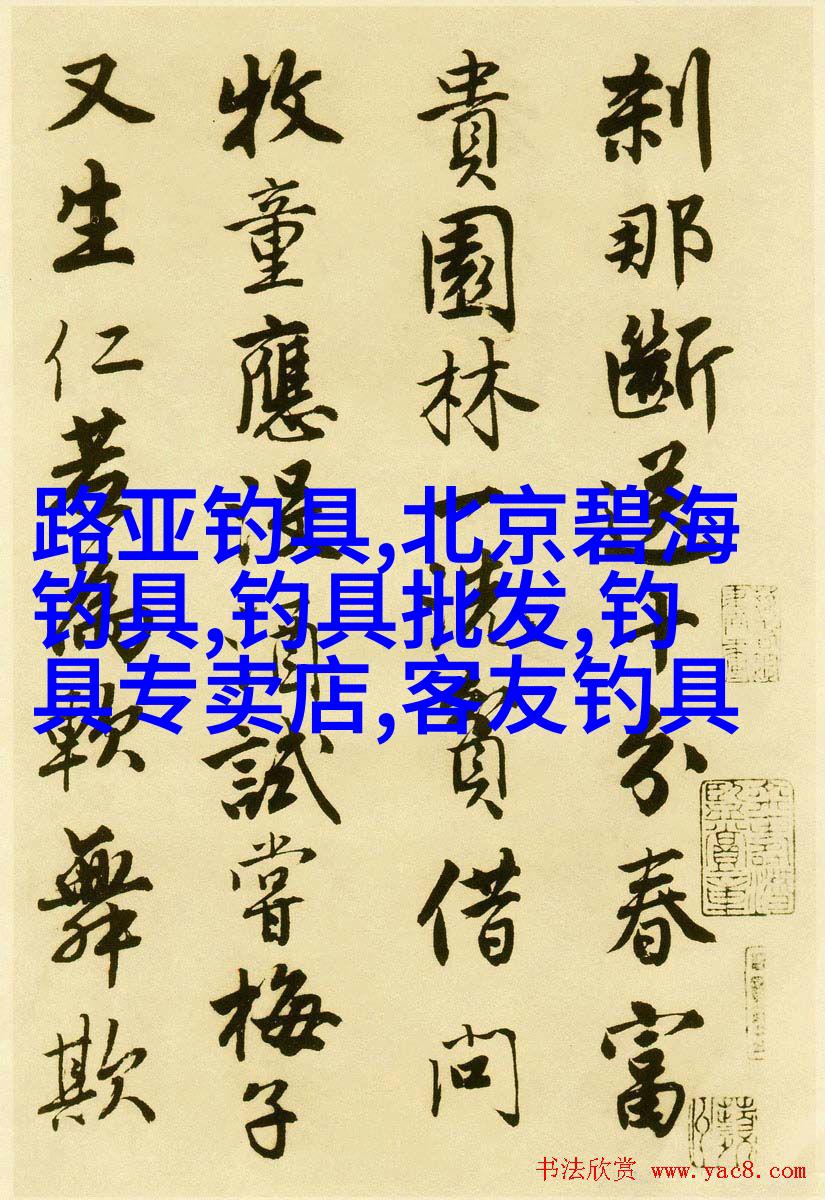 刹那斷送十分春富
貴園林一洗貧借問
牧童應没酒試嘗梅子
又生仁若為軟舞欺
路亚钓具,北京碧海
钓具,钓具批发,钓
具专卖店,客友钓具
书法欣赏 www.yac8.com